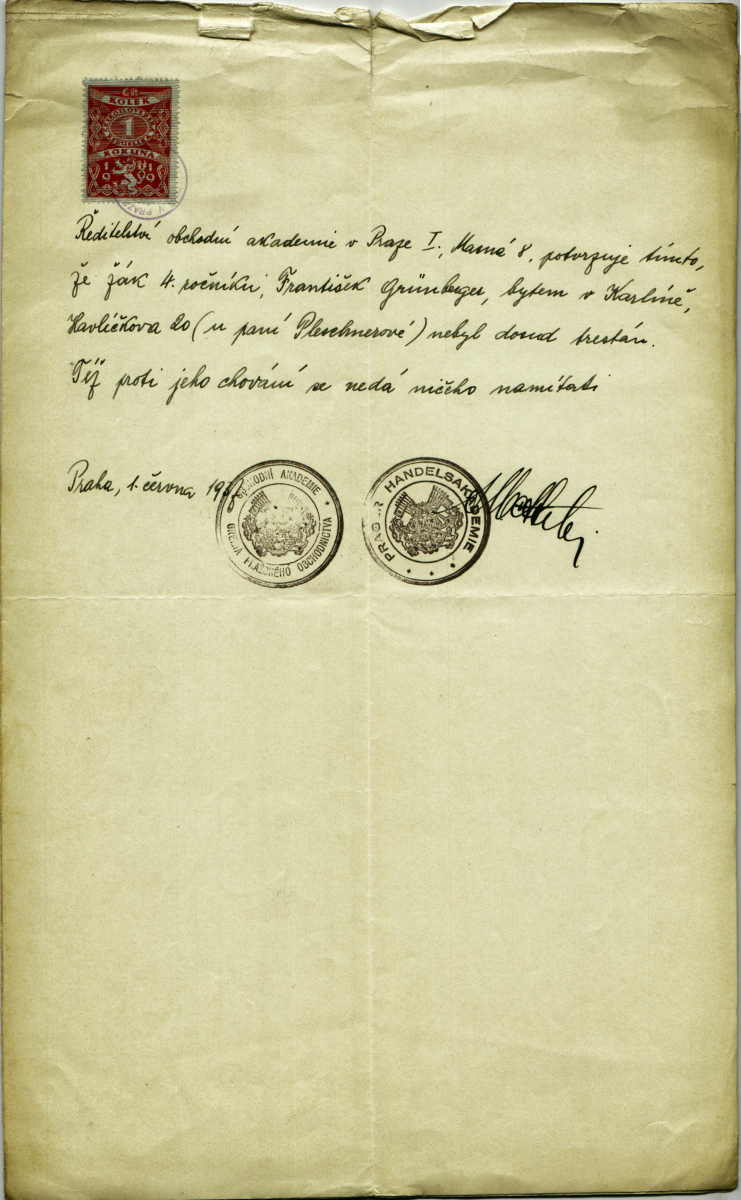 KOLEK
1
KORUNA
1919
Ředitelství obchodní akademie v Praze I., Masná 8, potvrzuje tímto,
že žák 4. ročníku, František Grünberger, bytem v Karlíně,
Havlíčkova 20 (u paní Pleschnerové) nebyl dosud trestán.
Též proti jeho chování se nedá ničeho namítati
Praha, 1. června
OBCHODNÍ AKADEMIE
GREMIA PRAŽSKÉHO OBCHODNICTVA
PRAGER HANDELSAKADEMIE